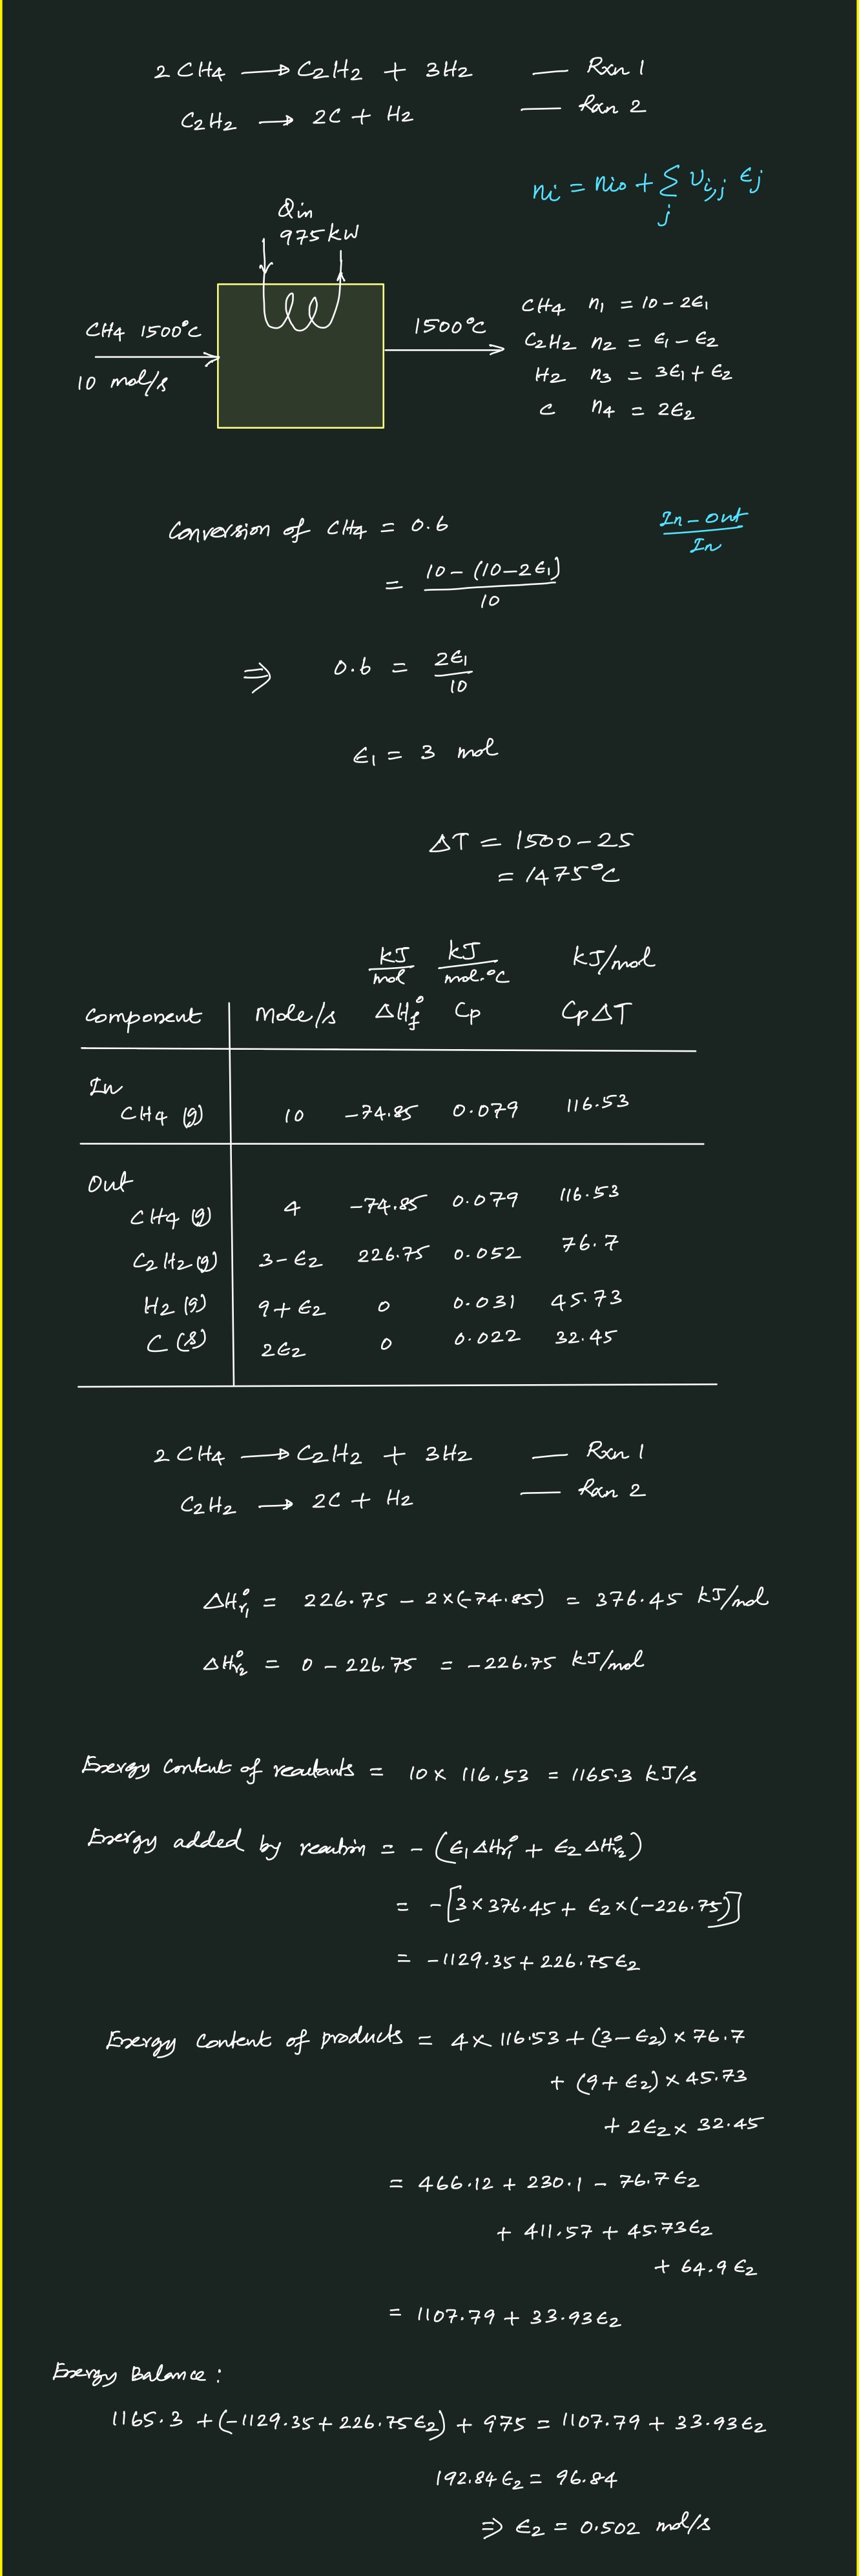 2CH4 ⟶ C2H2 + 3H2 — Rxn 1
C2H2 ⟶ 2C + H2 — Rxn 2
ni = nio + ∑j νi,j ϵj
Qin
975 kW
CH4 1500°C
10 mol/s
1500°C
CH4 n1 = 10-2ϵ1
C2H2 n2 = ϵ1-ϵ2
H2 n3 = 3ϵ1+ϵ2
C n4 = 2ϵ2
Conversion of CH4 = 0.6
In-out/In
= 10-(10-2ϵ1)/10
⇒ 0.6 = 2ϵ1/10
ϵ1 = 3 mol
ΔT = 1500-25
= 1475°C
kJ/mol kJ/mol.°C kJ/mol
Component Mole/s ΔHf° Cp CpΔT
In
CH4 (g) 10 -74.85 0.079 116.53
Out
CH4 (g) 4 -74.85 0.079 116.53
C2H2(g) 3-ϵ2 226.75 0.052 76.7
H2 (g) 9+ϵ2 0 0.031 45.73
C (s) 2ϵ2 0 0.022 32.45
2CH4 ⟶ C2H2 + 3H2 — Rxn 1
C2H2 ⟶ 2C + H2 — Rxn 2
ΔHr1° = 226.75 - 2×(-74.85) = 376.45 kJ/mol
ΔHr2° = 0 - 226.75 = -226.75 kJ/mol
Energy Content of reactants = 10× 116.53 = 1165.3 kJ/s
Energy added by reaction = -(ϵ1ΔHr1° + ϵ2ΔHr2°)
= -[3×376.45 + ϵ2×(-226.75)]
= -1129.35+226.75ϵ2
Energy content of products = 4× 116.53 + (3-ϵ2) × 76.7
+ (9+ϵ2)×45.73
+ 2ϵ2× 32.45
= 466.12 + 230.1 - 76.7ϵ2
+ 411.57 + 45.73ϵ2
+ 64.9ϵ2
= 1107.79 + 33.93ϵ2
Energy Balance:
1165.3 +(-1129.35+226.75ϵ2) + 975 = 1107.79 + 33.93ϵ2
192.84ϵ2 = 96.84
⇒ ϵ2 = 0.502 mol/s